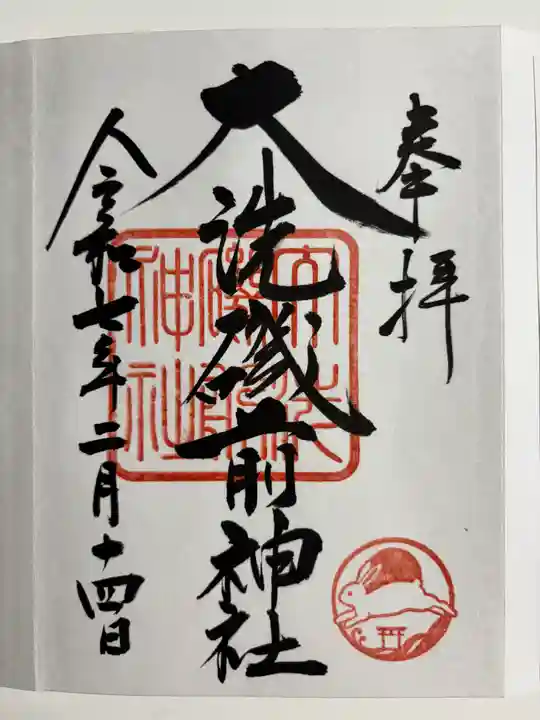 奉拝
大洗磯前神社
令和七年二月十四日
大洗
磯前
神社